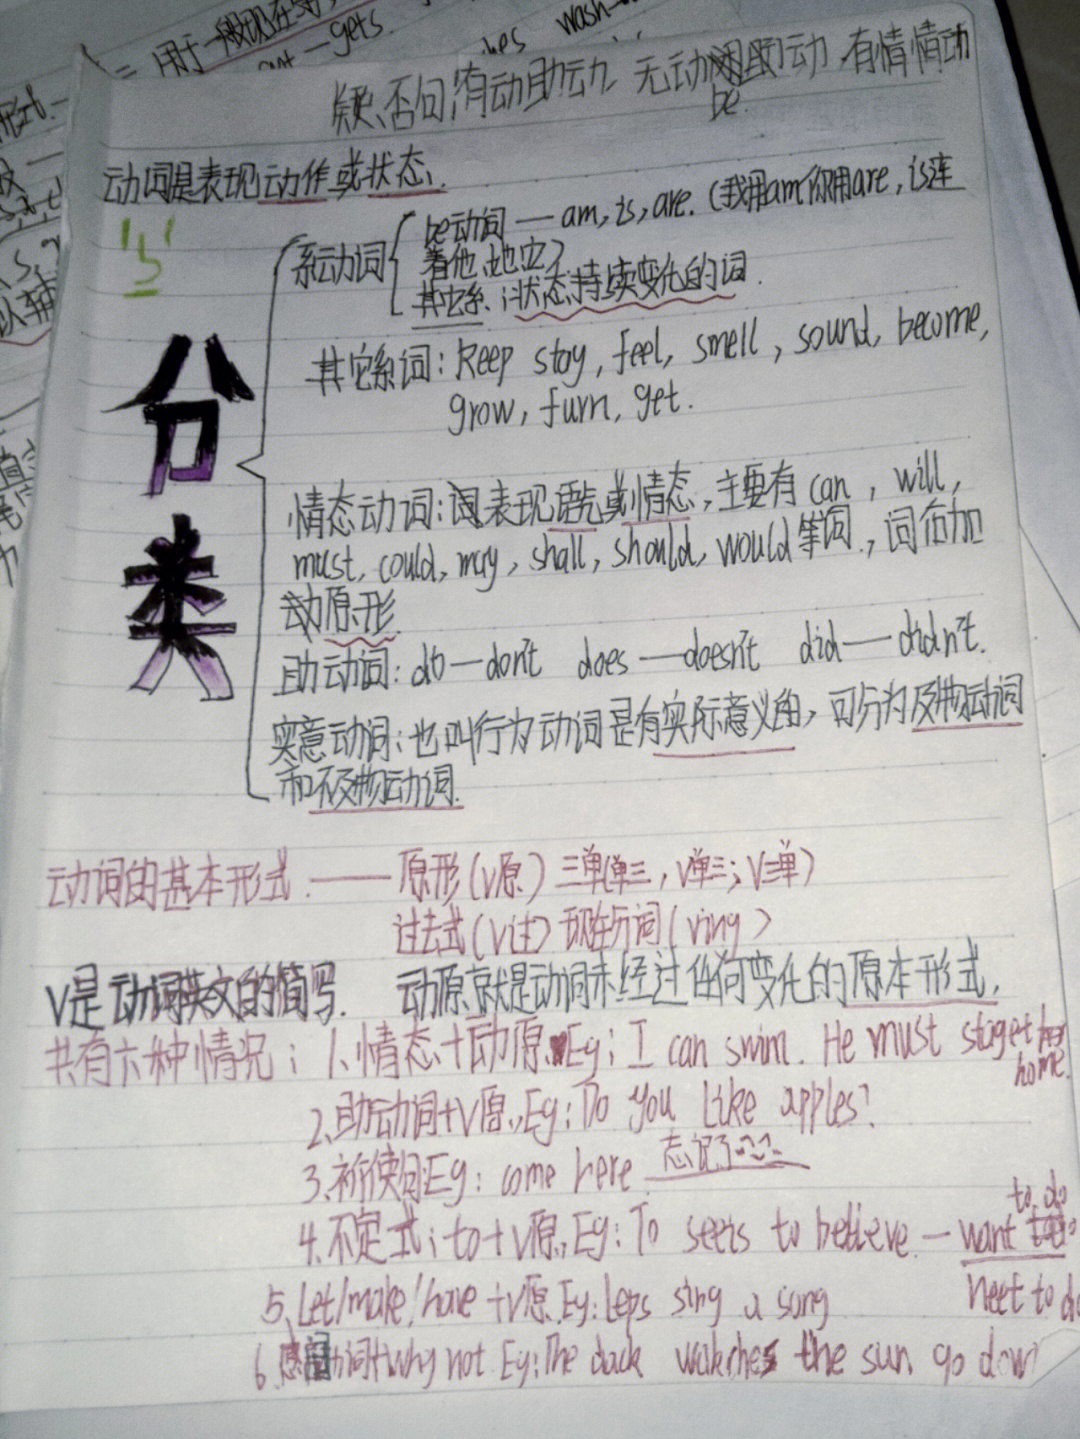 用于一般现在时
gets
wash
疑、否句:有动助动, 无动用be动 有情情动
动词是表现动作或状态.
分类
系动词
be动词 — am, is, are. (我用am你用are, is连
着他、她它)
其它系、:状态持续变化的词.
其它系词: keep stay, feel, smell, sound, become,
grow, turn, get.
情态动词:表现语气或情态, 主要有 can, will,
must, could, may, shall, should, would 等词, 词后加
动原形
助动词: do—don't does—doesn't did—didn't.
实意动词:也叫行为动词是有实际意义的, 可分为及物动词
和不及物动词.
动词的基本形式. —— 原形(V原) 三单(单三, V单三; V三单)
过去式(V过) 现在分词(ving)
V是动词英文的简写. 动原就是动词未经过任何变化的原本形式.
共有六种情况: 1、情态+动原. Eg: I can swim. He must
home.
2、助动词+V原., Eg: Do you like apples?
3、祈使句Eg: come here. 忘记了
4、不定式: to+V原., Eg: To seeis to believe. — want to do
5、Let/make/have +V原. Eg: sing a song neet to do
6、动词+why not Eg: The the sun go down